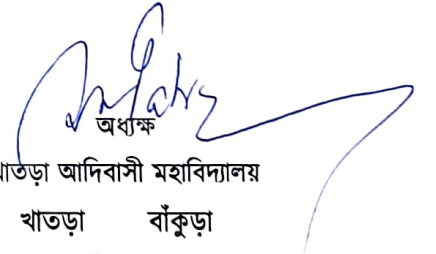 অধ্যক্ষ
খাতড়া আদিবাসী মহাবিদ্যালয়
খাতড়া বাঁকুড়া